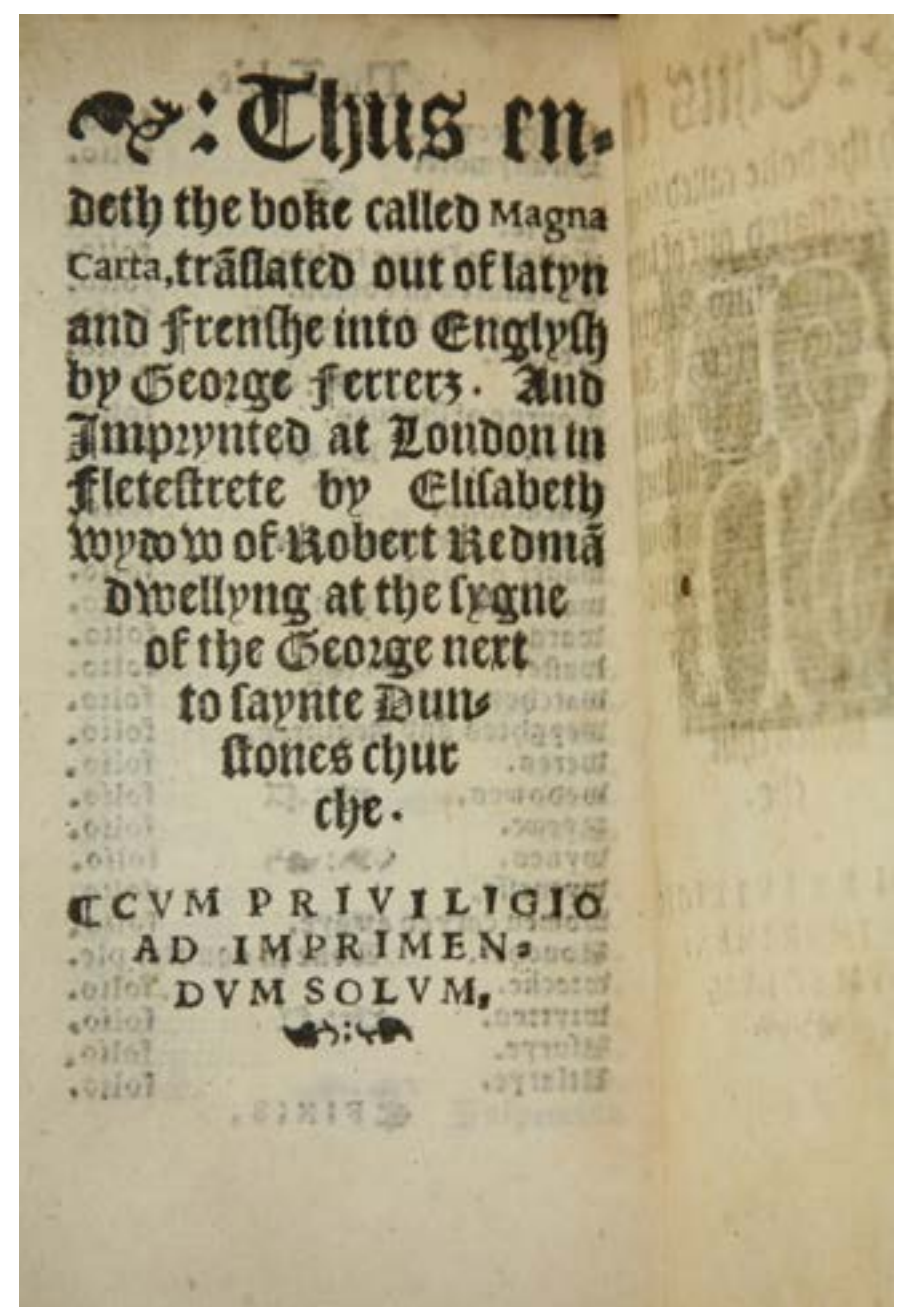 :Thus en-
deth the boke called Magna
Carta, trãſlated out of latyn
and Frenſhe into Englyſh
by George Ferrerz. And
Imprynted at London in
Fleteſtrete by Eliſabeth
wydow of Robert Redmã
dwellyng at the ſygne
of the George next
to ſaynte Dun-
ſtones chur
che.
¶CVM PRIVILIGIO
AD IMPRIMEN-
DVM SOLVM,